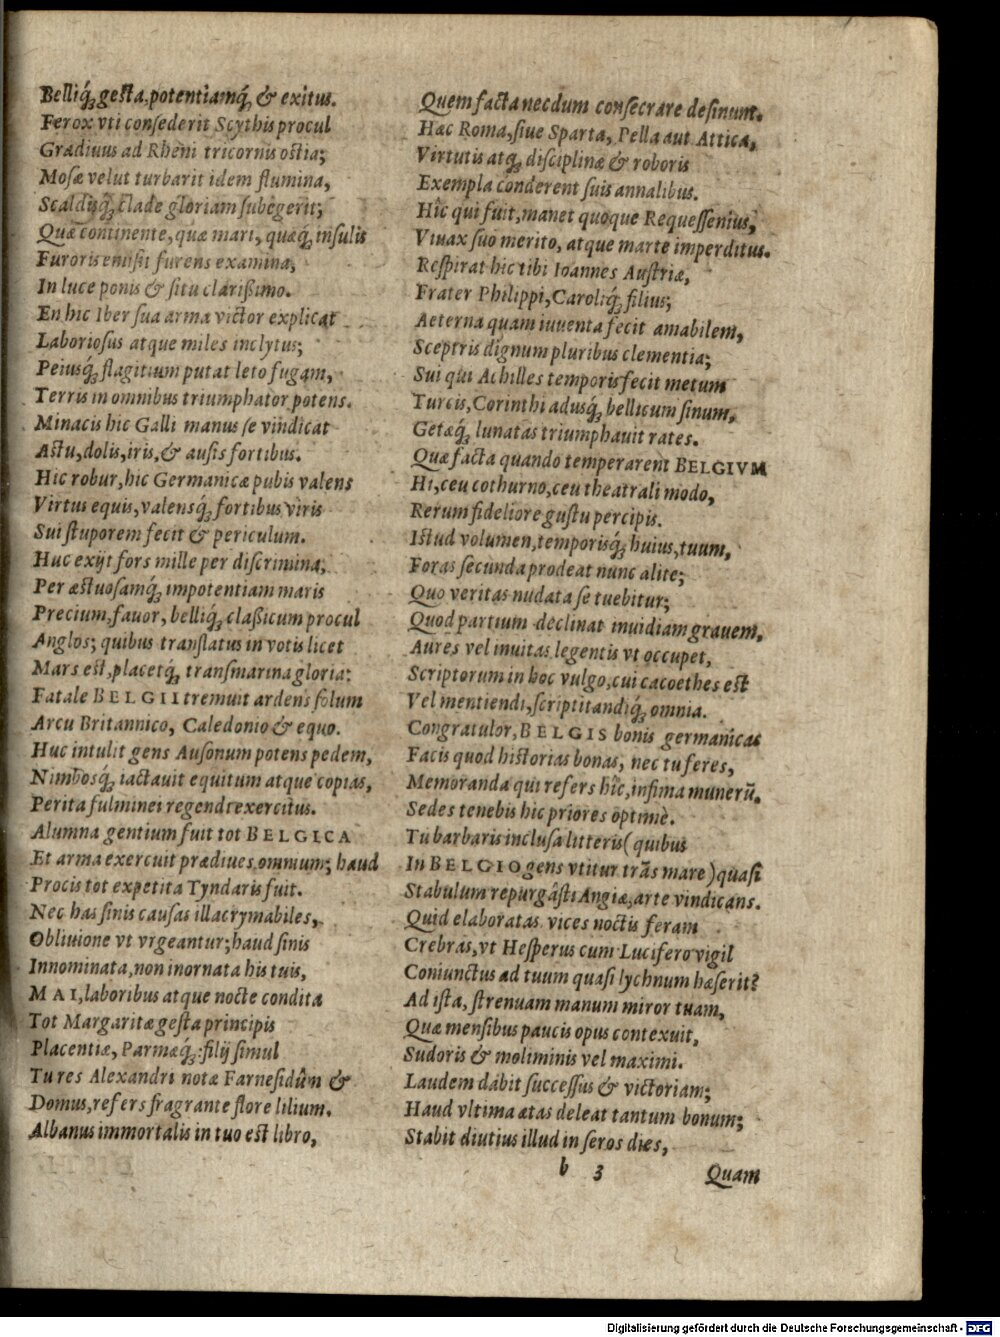 Belliq́ꝫ gesta, potentiamq́ꝫ, & exitus.
Ferox vti consederit Scythis procul
Gradiuus ad Rheni tricornis ostia;
Mosæ velut turbarit idem flumina,
Scaldisq́ꝫ clade gloriam subegerit;
Quæ continente, quæ mari, quæq́ꝫ insulis
Furoris emisit furens examina;
In luce ponis & situ clarißimo.
En hic Iber sua arma victor explicat
Laboriosus atque miles inclytus;
Peiusq́ꝫ flagitium putat leto fugam,
Terris in omnibus triumphator potens.
Minacis hic Galli manus se vindicat
Astu, dolis, iris, & ausis fortibus.
Hic robur, hic Germanicæ pubis valens
Virtus equis, valensq́ꝫ fortibus viris
Sui stuporem fecit & periculum.
Huc exijt fors mille per discrimina,
Per æstuosamq́ꝫ impotentiam maris
Precium, fauor, belliq́ꝫ claßicum procul
Anglos; quibus translatus in votis licet
Mars est, placetq́ꝫ transmarina gloria:
Fatale BELGII tremuit ardens solum
Arcu Britannico, Caledonio & equo.
Huc intulit gens Ausonum potens pedem,
Nimbosq́ꝫ iactauit equitum atque copias,
Perita fulminei regendi exercitus.
Alumna gentium fuit tot BELGICA
Et arma exercuit prædiues omnium; haud
Procis tot expetita Tyndaris fuit.
Nec has sinis causas illacrymabiles,
Obliuione vt vrgeantur; haud sinis
Innominata, non inornata his tuis,
MAI, laboribus atque nocte condita
Tot Margaritæ gesta principis
Placentiæ, Parmæq́ꝫ: filij simul
Tu res Alexandri notæ Farnesidûm &
Domus, refers fragrante flore lilium.
Albanus immortalis in tuo est libro,
Quem facta necdum consecrare desinunt.
Hac Roma, siue Sparta, Pella aut Attica,
Virtutis atqꝫ disciplinæ & roboris
Exempla conderent suis annalibus.
Hîc qui fuit, manet quoque Requessenius,
Viuax suo merito, atque marte imperditus.
Respirat hic tibi Ioannes Austriæ,
Frater Philippi, Caroliq́ꝫ filius;
Aeterna quam iuuenta fecit amabilem,
Sceptris dignum pluribus clementia;
Sui qui Achilles temporis fecit metum
Turcis, Corinthi adusq́ꝫ bellicum sinum,
Getæq́ꝫ lunatas triumphauit rates.
Quæ facta quando temperarent BELGIVM
Hi, ceu cothurno, ceu theatrali modo,
Rerum fideliore gustu percipis.
Istud volumen, temporisq́ꝫ huius, tuum,
Foras secunda prodeat nunc alite;
Quo veritas nudata se tuebitur;
Quod partium declinat inuidiam grauem,
Aures vel inuitas legentis vt occupet,
Scriptorum in hoc vulgo, cui cacoethes est
Vel mentiendi, scriptitandiq́ꝫ omnia.
Congratulor, BELGIS bonis germanicas
Facis quod historias bonas, nec tu feres,
Memoranda qui refers hîc, infima munerũ.
Sedes tenebis hic priores optimè.
Tu barbaris inclusa litteris (quibus
In BELGIO gens vtitur trãs mare) quasi
Stabulum repurgâsti Angiæ, arte vindicans.
Quid elaboratas vices noctis feram
Crebras, vt Hesperus cum Lucifero vigil
Coniunctus ad tuum quasi lychnum hæserit?
Ad ista, strenuam manum miror tuam,
Quæ mensibus paucis opus contexuit,
Sudoris & moliminis vel maximi.
Laudem dabit successus & victoriam;
Haud vltima ætas deleat tantum bonum;
Stabit diutius illud in seros dies,
b 3 Quam
Digitalisierung gefördert durch die Deutsche Forschungsgemeinschaft - DFG